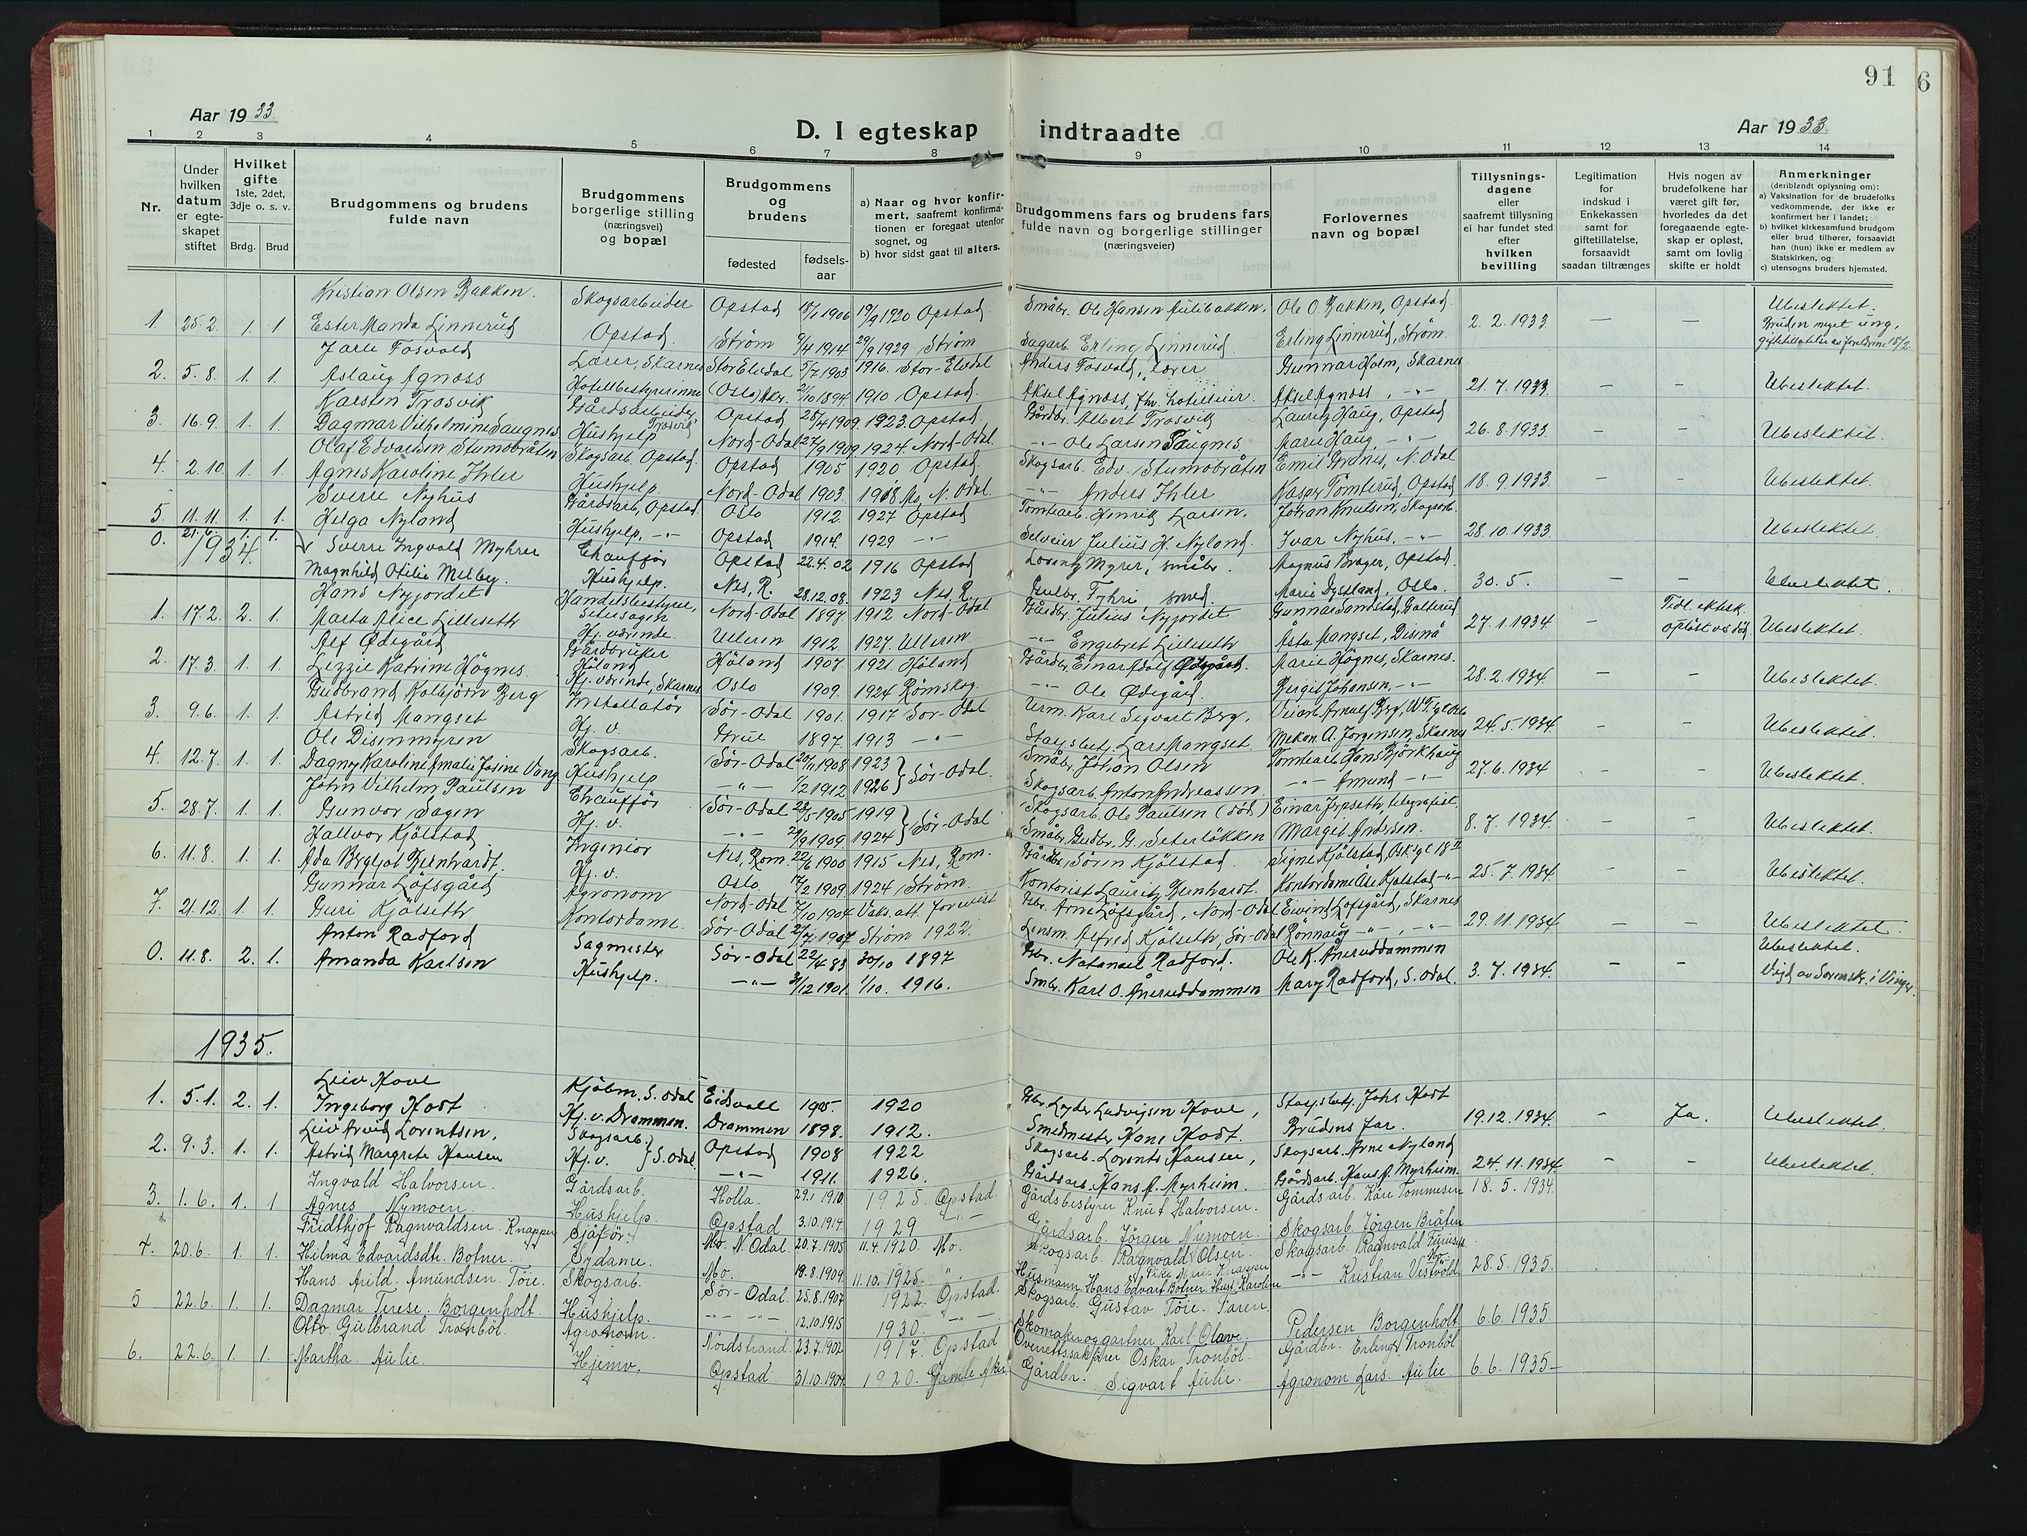 91
6
Aar 1933.
D. I egteskap indtraadte
Aar 1933.
1 2 3 4 5 6 7 8 9 10 11 12 13 14
Nr.
Under hvilken datum er egteskapet stiftet
Hvilket gifte 1ste, 2det, 3dje o. s. v.
Brdg. Brud
Brudgommens og brudens fulde navn
Brudgommens borgerlige stilling (næringsvei) og bopæl
Brudgommens og brudens
fødested fødselsaar
a) Naar og hvor konfirmert, saafremt konfirmationen er foregaat utenfor sognet, og
b) hvor sidst gaat til alters.
Brudgommens fars og brudens fars fulde navn og borgerlige stillinger (næringsveier)
Forlovernes navn og bopæl
Tillysningsdagene eller saafremt tillysning ei har fundet sted efter hvilken bevilling
Legitimation for indskud i Enkekassen samt for giftetillatelse, forsaavidt saadan tiltrænges
Hvis nogen av brudefolkene har været gift før, hvorledes da det foregaaende egteskap er opløst, samt om lovlig skifte er holdt
Anmerkninger (deriblandt oplysning om):
a) Vaksination for de brudefolks vedkommende, der ikke er konfirmert her i landet;
b) hvilket kirkesamfund brudgom eller brud tilhører, forsaavidt han (hun) ikke er medlem av Statskirken, og
c) utensogns bruders hjemsted.
Kristian Olsen Bakken. Skogsarbeider Opstad 1906 1920 Opstad. Småbr. Ole Hansen Aulibakken, Ole O. Bakken, Opstad. Ubeslektet.
1 25.2. 1. 1 Ester Manda Linnerud Opstad. Strøm 9/4 1914 29/9 1929 Strøm Sagarb. Erling Linnerud Erling Linnerud, Strøm. 2.2.1933 – – Bruden meget ung,
Jarle Fosvold Lærer, Skarnes Stor Elvdal 5/7 1903 1916. Stor-Elvdal Anders Fosvold, lærer Gunnar Holm, Skarnes
2. 5.8. 1. 1. Aslaug Agnæss Hotellbestyrerinne (Oslo) Aker 1894 1910 Opstad. Aksel Agnæss, fhv. hotelleier. Aksel Agnæss, -"- 21.7.1933 – – Ubeslektet.
Karsten Trosvik Gårdsarbeider, Trosvik Opstad 25/4 1909. 1923. Opstad. Gårdbr. Albert Trosvik Lauritz Haug, Opstad
3. 16.9. 1. 1. Dagmar Vilhelmine Saugnes Hushjelp Nord-Odal 27/9 1909 1924. Nord-Odal -"- Ole Larsen Saugnes Marie Haug, -"- 26.8.1933 – – Ubeslektet.
Olaf Edvardsen Stumobråten Skogsarb. Opstad. Opstad 1905 1920 Opstad. Skogsarb. Edv. Stumobråten Emil Granes, N. Odal
4. 2.10. 1. 1. Agnes Karoline Ihler Hushjelp. Nord-Odal 1903. 1918 Mo N. Odal. -"- Anders Ihler Kasper Tomterud, Opstad 18.9.1933. – – Ubeslektet.
Sverre Nyhus Gårdsarb, Opstad. Oslo 1912 1927 Opstad Tomtearb. Henrik Larsen. Johan Knutsen, Skogsarb.
5. 11.11. 1. 1. Helga Nyland Hushjelp, -"- Opstad 1914. 1929 -"- Selveier Julius H. Nyland. Ivar Nyhus, -"- 28.10.1933 – – Ubeslektet
0. 21.6. 1. 1. Sverre Ingvald Myhrer Chauffør Opstad 22.4.02 1916 Opstad Magnus Brager, Opstad.
1934.
Magnhild Otilie Melby. Hushjelp. Nes, R. 28.12.08. 1923 Nes, R. Gulbr. Fyhri, smed. Oslo. 30.5. – – Ubeslektet.
Hans Nyjordet Handelsbestyrer, Nord-Odal 1897 1912 Nord-Odal Gårdbr. Julius Nyjordet Tidl. ektesk.
1. 17.2. 2. 1. Marta Alice Lilleseth Hj. værende. Ullern 1912 1927. Ullern -"- Engebret Lilleseth Åsta Mangset, Disenå 27.1.1934 – opløst ved død Ubeslektet.
Alf Ødegård Gårdbruker Høland Høland 1907 1921. Høland Gårdbr. Einar Adolf Ødegård. Marie Høgnes, Skarnes.
2. 17.3. 1. 1. Lizzie Katrine Høgnes Hj. værende, Skarnes Oslo 1909. 1924 Rømskog. -"- Ole Ødegård Bergit Johansen, -"- 28.2.1934. – – Ubeslektet.
Gudbrand Kolbjørn Berg Installatør Sør-Odal 1901. 1917 Sør-Odal Urm. Karl Sigvart Berg,
3. 9.6. 1. 1. Astrid Mangset Hj. v. Grue 1897 1913 -"- Stasjonsbetj. Lars Mangset. Mekan. A. Jørgensen, Skarnes 24.5.1934 – – Ubeslektet.
Ole Disenmyren Skogsarb. Sør-Odal 20/11 1908 1923 Småbr. Johan Olsen Tomtearb. Hans Bjørkhaug
4. 12.7. 1. 1. Dagny Karoline Amalie Josine Vang Hushjelp -"- 1/2 1912 1926 } Sør-Odal. Skogsarb. Anton Andreassen. -"- Amund -"- 27.6.1934 – – Ubeslektet.
John Vilhelm Paulsen Chauffør Sør-Odal 23/5-1905 1919 Skogsarb. Ole Paulsen (død) Einar Jypseth, telegrafist.
5. 28.7. 1. 1. Gunvor Sagen Hj. v. -"- 21/9 1909 1924 } Sør-Odal Småbr. Gudbr. G. Seterløkken Margit Andersen. 8.7.1934 – – Ubeslektet.
Hallvor Kjølstad Ingeniør Nes, Rom. 22/6 1900 1915 Nes, Rom. Gårdbr. Søren Kjølstad. Signe Kjølstad,
6. 11.8. 1. 1. Ada Bergljot Bernhardt. Hj. v. Oslo 17/2 1909 1924 Strøm. Kontorist Lauritz Bernhardt. Kontordame Åse Kjølstad -"- 25.7.1934 – – Ubeslektet.
Gunnar Løfsgård Agronom Nord-Odal 7/10 1904 Vaks. att. forevist Gbr. Arne Løfsgård, Nord-Odal Eivind Løfsgård, Skarnes
7. 21.12. 1. 1. Guri Kjølseth Kontordame. Sør-Odal 1907 Strøm 1922. Lensm. Alfred Kjølseth, Sør-Odal Rønnaug -"-, -"- 29.11.1934 – – Ubeslektet.
Anton Radford Sagmester Sør-Odal 22/4 83 30/10 1897 Gbr. Natanael Radford. Ole K. Aneruddammen Ubeslektet.
0. 11.8. 2. 1. Amanda Karlsen Hushjelp. -"- 31/12 1901. 1/10. 1916. Smbr. Karl O. Aneruddammen Mary Radford, S. Odal. 3.7.1934. – – Vigd av Sorenskr. i Vinger.
1935.
Leiv Hove Kjøbm. S. Odal Eidsvoll 1905. 1920 Gbr. Lyder Ludvigsen Hove, Stasjonsbetj. Johs Hodt
1. 5.1. 2. 1. Ingeborg Hodt Hj. v. Drammen. Drammen 1898. 1912. Smedmester Hans Hodt. Brudens far. 19.12.1934. – Ja. Ubeslektet.
Leiv Arvid Lorentsen, Skogsarb. Opstad 1908 1922 Skogsarb. Lorents Hansen, Skogsarb. Arne Nyland
2. 9.3. 1. 1. Astrid Margrete Hansen Hj. v. } S. Odal. -"- 1911. 1926. Gårdsarb. Hans A. Myrheim. Gårdsarb. Hans A. Myrheim. 24.11.1934 – – Ubeslektet.
Ingvald Halvorsen. Gårdsarb. Holla. 29.1.1910 1925. Opstad Gårdsbestyrer Knut Halvorsen. Gårdsarb. Kåre Tommesen 18.5.1934.
3. 1.6. 1. 1 Agnes Nymoen. Hushjelp. Opstad 3.10.1914. 1929 -"- Gårdsarb. Jørgen Nymoen. Skogsarb. Jørgen Bråten
Fridthjof Ragnvaldsen Knapper Sjåfør. Mo. N. Odal. 20.7.1905 11.4.1920. Mo. Skogsarb. Ragnvald Olsen. Skogsarb. Ragnvald
4. 20.6. 1. 1. Hilma Edvardsdt. Botner. Sydame. Mo. 19.8.1909. 11.10.1925. " Husmann Hans Edvart Botner -"- Kristian Vestvold 28.5.1935.
Hans Arild Amundsen Tøie. Skogsarb. Sør-Odal. 25.8.1907 1922 Opstad. Skogsarb. Gustav Tøie.
5 22.6. 1. 1. Dagmar Terese Borgenholt. Hushjelp. -"- -"- 12.10.1915 1930. -"- Skomaker og gartner Karl Olave Pedersen Borgenholt 6.6.1935
Otto Gulbrand Tronbøl. Agronom. Nordstrand. 23.7.1902 1917. Opstad Overrettssakfører Oskar Tronbøl. Gårdbr. Erling Tronbøl
6. 22.6. 1. 1. Martha Aulie. Hjemv. Opstad. 31.10.1904. 1920. Gamle Aker Gårdbr. Sigvart Aulie. Agronom Lars Aulie 6.6.1935–